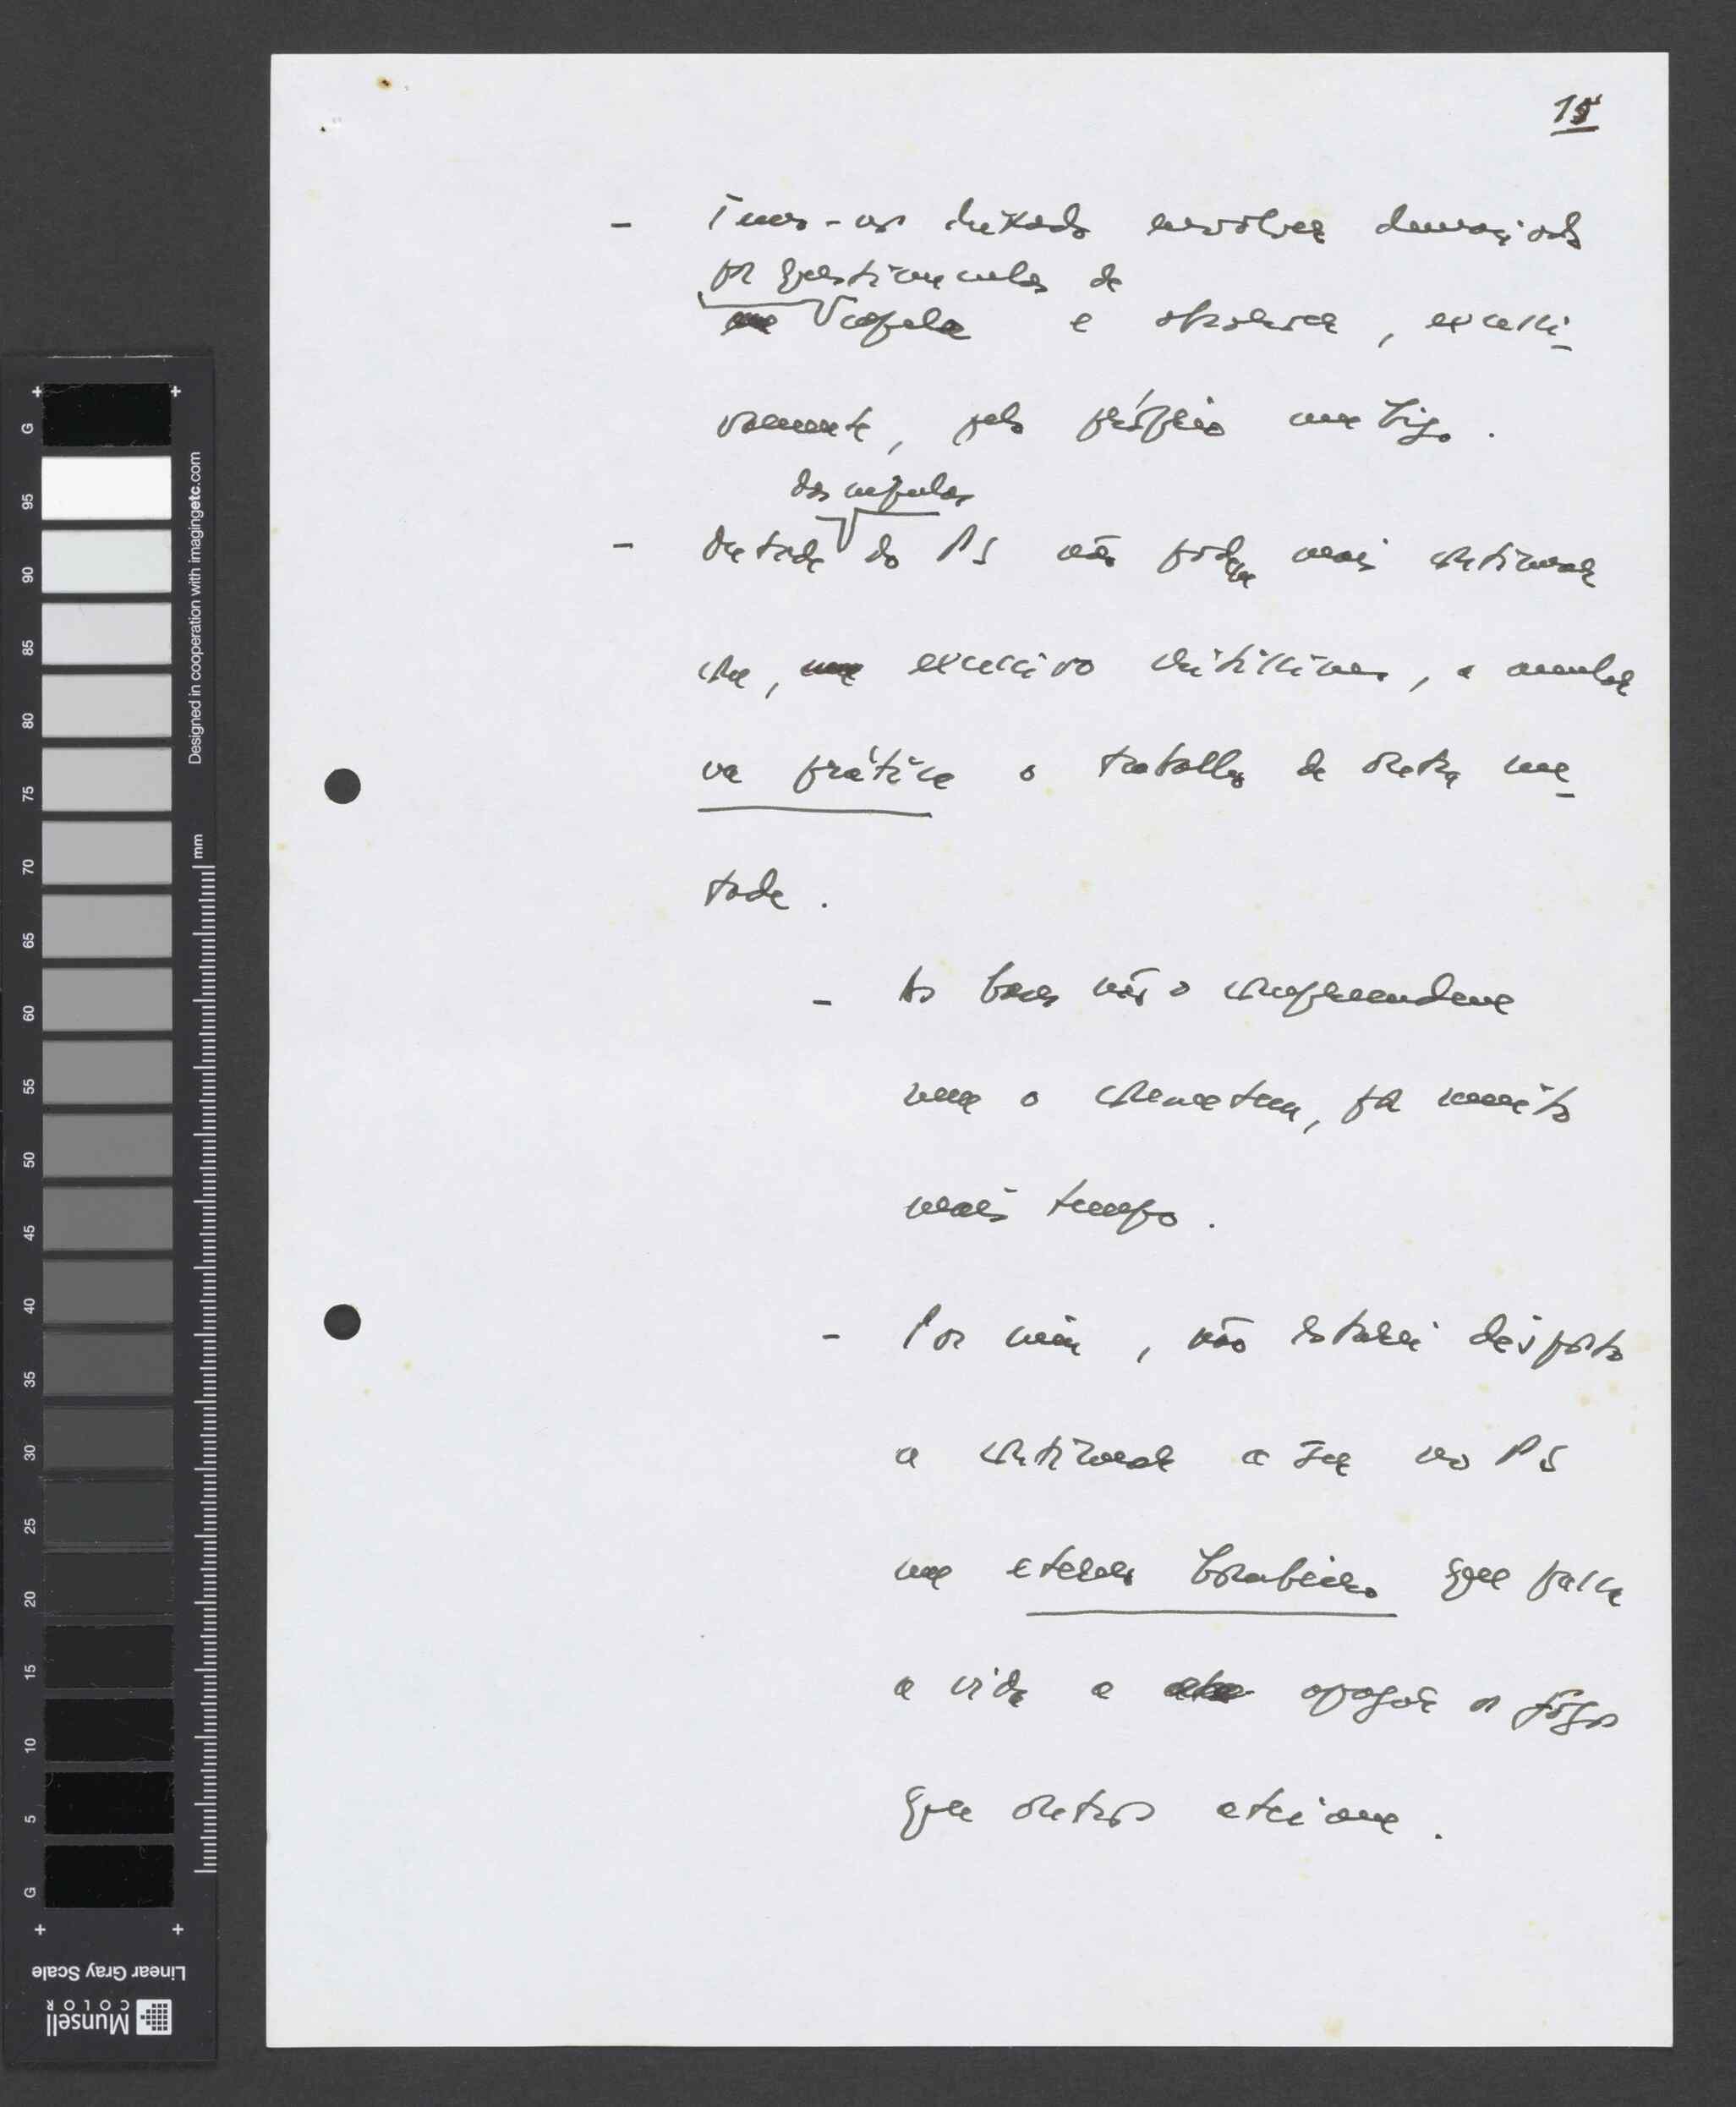 15
- Temo-nos deixado envolver demasiado
por questiúnculas de
cúpula e absorver, excessi-
vamente, pelo próprio umbigo.
das cúpulas
- Metade do PS não pode mais continuar
com, excessivo criticismo, a anular
na prática o trabalho da outra me-
tade.
- As bases não o compreendem
nem o consentem, por muito
mais tempo.
- Por mim, não estarei disposto
a continuar a ser no PS
um eterno bombeiro que passe
a vida a apagar os fogos
que outros ateiam.
G 95 90 85 80 75 70 65 60 55 50 45 40 35 30 25 20 15 10 5 G
mm
Designed in cooperation with imagingetc.com
Linear Gray Scale
Munsell
COLOR